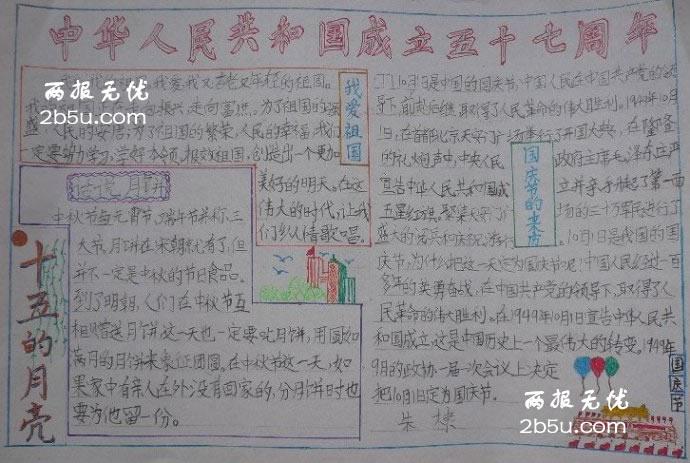 中华人民共和国成立五十七周年
我爱祖国
我爱又古老又年轻的祖国。
走向振兴,走向富洪。为了祖国的强
盛,人民的安居,为了祖国的繁荣,人民的幸福,我们
一定要努力学习,学好本领,报效祖国,创造出一个更加
美好的明天。在这
伟大的时代,让我
们纵人情歌唱。
话说月饼
中秋节与元宵节、端午节半称三
大节,月饼在宋朝就有了,但
并不一定是中秋的节日食品。
到了明朝,人们在中秋节互
相赠送月饼这一天也一定要吃月饼,用圆如
满月的月饼来象征团圆。在中秋节这一天,如
果家中有亲人在外没有回家的,分月饼时也
要为他留一份。
十五的月亮
国庆节的来历
10月1日是中国的国庆节,中国人民在中国共产党的领
导下,前赴后继,取得了人民革命的伟大胜利。1949年10月1
日,在首都北京天安门广场举行了开国大典,在隆隆
的礼炮声中,中央人民政府主席毛泽东庄严
宣告中华人民共和国成立并亲手升起了第一面
五星红旗,聚集天安门广场的三十万军民进行了
盛大的阅兵和庆祝游行。10月1日是我国的国
庆节,为什么把这一天定为国庆节呢!中国人民经过一百
多年的英勇奋战,在中国共产党的领导下,取得了人
民革命的伟大胜利。在1949年10月1日宣告中华人民共
和国成立,这是中国历史上一个最伟大的转变。1949年
9月的政协一届一次会议上决定
把10月1日定为国庆节。
朱
国庆节
两报无优
2b5u.com
两报无优
2b5u.com